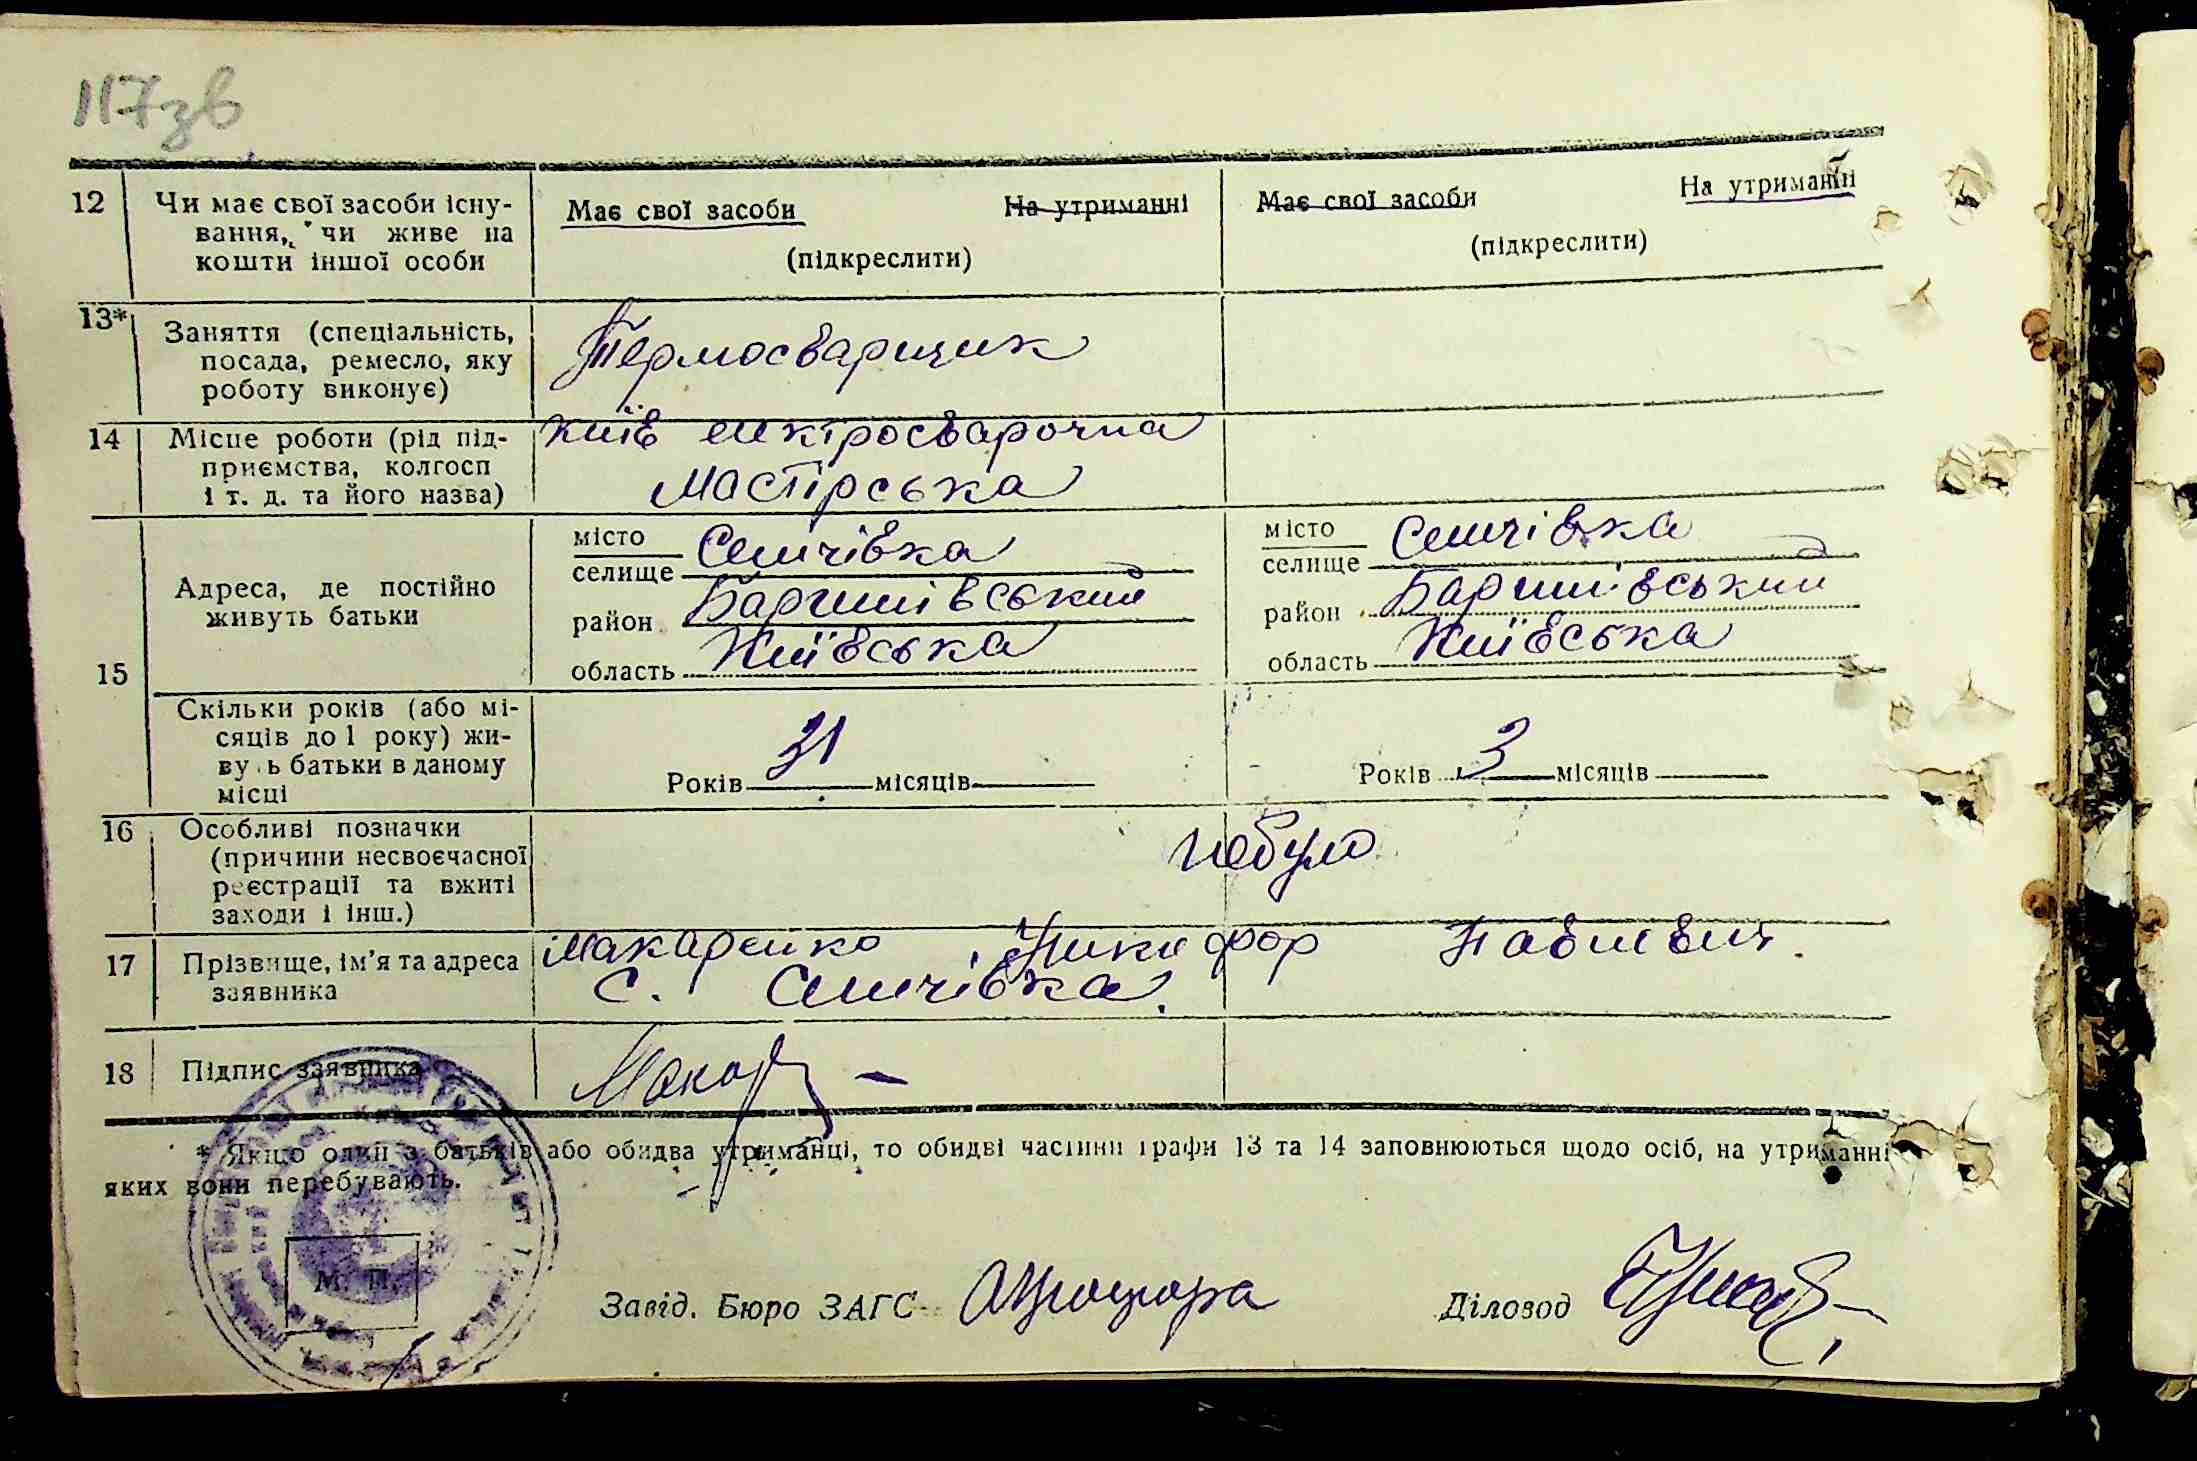 117зв
12 Чи має свої засоби існу- Має свої засоби На утриманні Має свої засоби На утриманні
вання, чи живе на
кошти іншої особи (підкреслити) (підкреслити)
13* Заняття (спеціальність, Термосварщик
посада, ремесло, яку
роботу виконує)
14 Місце роботи (рід під- Київ електросварочна
приємства, колгосп
і т. д. та його назва) Мастірська
15 Адреса, де постійно
живуть батьки
місто Селичівка місто Селичівка
селище селище
район Баришівський район Баришівський
область Київська область Київська
Скільки років (або мі-
сяців до 1 року) жи-
вуть батьки в даному
місці
Років 31 місяців Років 3 місяців
16 Особливі позначки небуло
(причини несвоєчасної
реєстрації та вжиті
заходи і інш.)
17 Прізвище, ім'я та адреса Макаренко Никифор Павлович.
заявника с. Селичівка.
18 Підпис заявника Макар
* Якщо один з батьків або обидва утриманці, то обидві частини графи 13 та 14 заповнюються щодо осіб, на утриманні
яких вони перебувають.
М. П.
Завід. Бюро ЗАГС Діловод